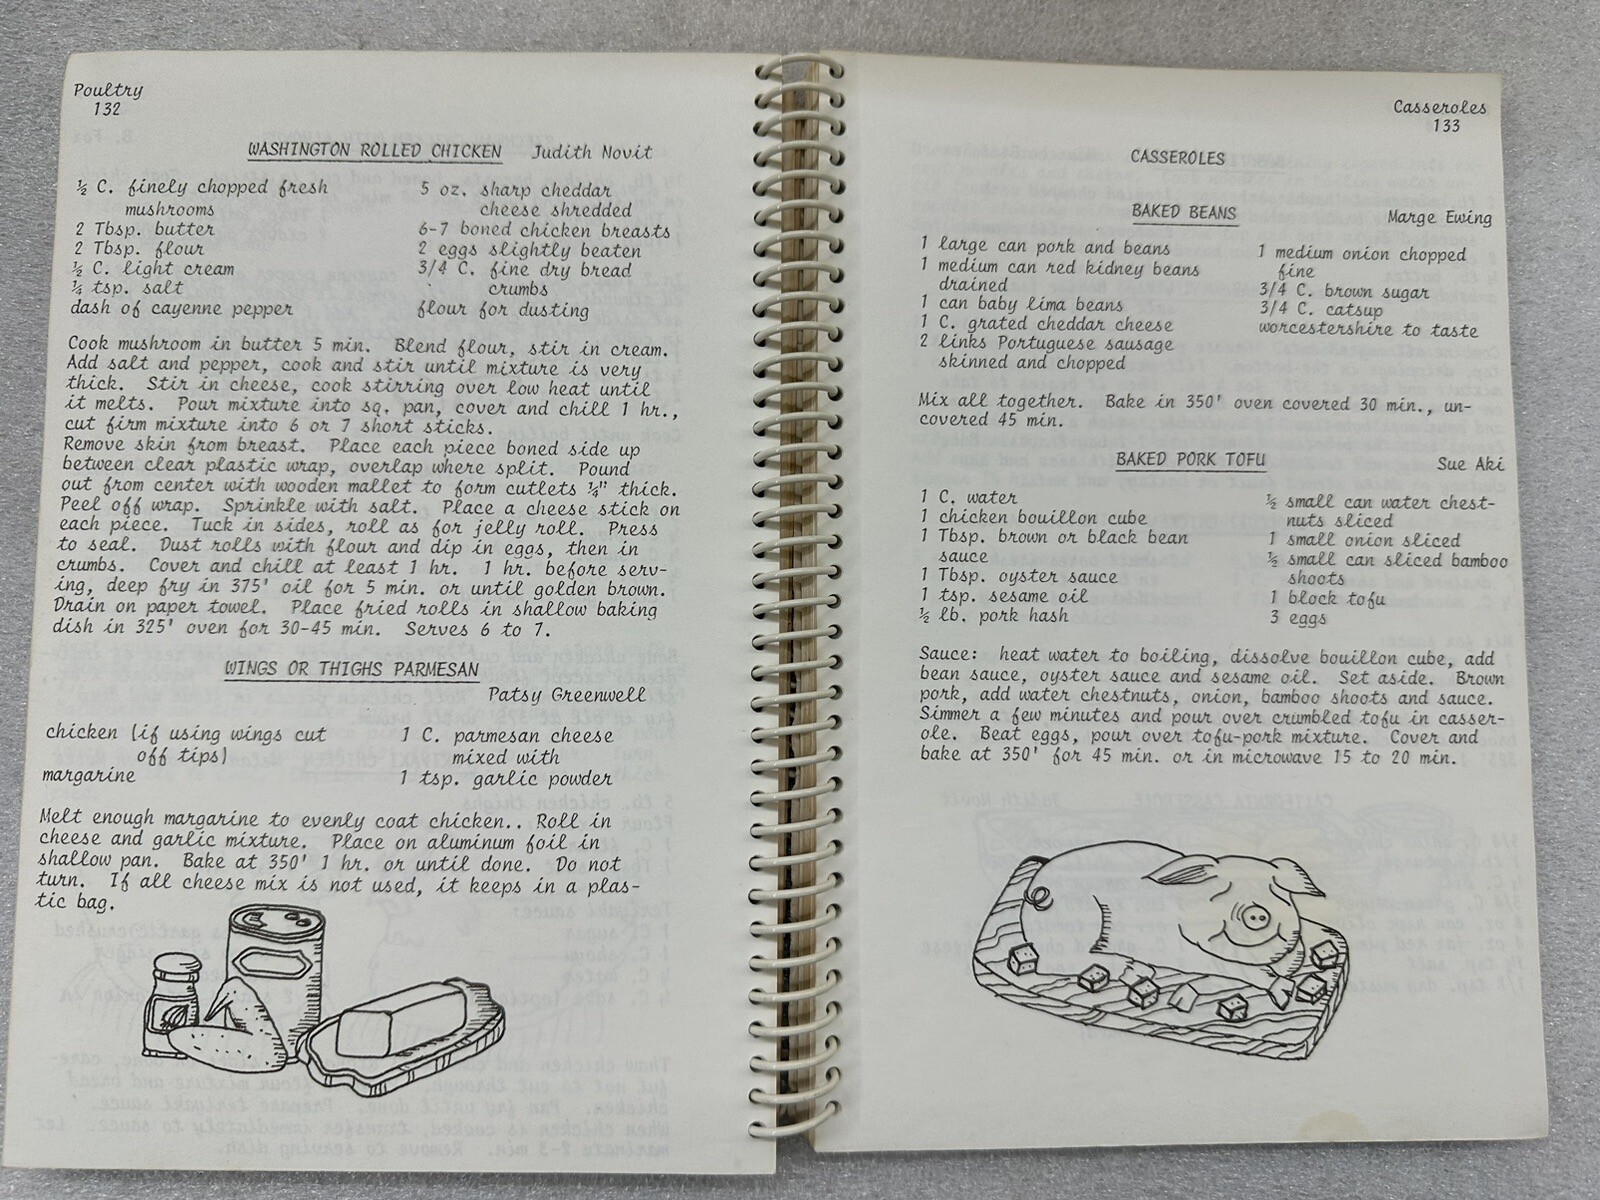 Poultry
132
WASHINGTON ROLLED CHICKEN Judith Novit
½ C. finely chopped fresh
mushrooms
2 Tbsp. butter
2 Tbsp. flour
½ C. light cream
¼ tsp. salt
dash of cayenne pepper
5 oz. sharp cheddar
cheese shredded
6-7 boned chicken breasts
2 eggs slightly beaten
3/4 C. fine dry bread
crumbs
flour for dusting
Cook mushroom in butter 5 min. Blend flour, stir in cream.
Add salt and pepper, cook and stir until mixture is very
thick. Stir in cheese, cook stirring over low heat until
it melts. Pour mixture into sq. pan, cover and chill 1 hr.,
cut firm mixture into 6 or 7 short sticks.
Remove skin from breast. Place each piece boned side up
between clear plastic wrap, overlap where split. Pound
out from center with wooden mallet to form cutlets ¼" thick.
Peel off wrap. Sprinkle with salt. Place a cheese stick on
each piece. Tuck in sides, roll as for jelly roll. Press
to seal. Dust rolls with flour and dip in eggs, then in
crumbs. Cover and chill at least 1 hr. 1 hr. before serv-
ing, deep fry in 375' oil for 5 min. or until golden brown.
Drain on paper towel. Place fried rolls in shallow baking
dish in 325' oven for 30-45 min. Serves 6 to 7.
WINGS OR THIGHS PARMESAN
Patsy Greenwell
chicken (if using wings cut
off tips)
margarine
1 C. parmesan cheese
mixed with
1 tsp. garlic powder
Melt enough margarine to evenly coat chicken.. Roll in
cheese and garlic mixture. Place on aluminum foil in
shallow pan. Bake at 350' 1 hr. or until done. Do not
turn. If all cheese mix is not used, it keeps in a plas-
tic bag.
Casseroles
133
CASSEROLES
BAKED BEANS Marge Ewing
1 large can pork and beans
1 medium can red kidney beans
drained
1 can baby lima beans
1 C. grated cheddar cheese
2 links Portuguese sausage
skinned and chopped
1 medium onion chopped
fine
3/4 C. brown sugar
3/4 C. catsup
worcestershire to taste
Mix all together. Bake in 350' oven covered 30 min., un-
covered 45 min.
BAKED PORK TOFU Sue Aki
1 C. water
1 chicken bouillon cube
1 Tbsp. brown or black bean
sauce
1 Tbsp. oyster sauce
1 tsp. sesame oil
½ lb. pork hash
½ small can water chest-
nuts sliced
1 small onion sliced
½ small can sliced bamboo
shoots
1 block tofu
3 eggs
Sauce: heat water to boiling, dissolve bouillon cube, add
bean sauce, oyster sauce and sesame oil. Set aside. Brown
pork, add water chestnuts, onion, bamboo shoots and sauce.
Simmer a few minutes and pour over crumbled tofu in casser-
ole. Beat eggs, pour over tofu-pork mixture. Cover and
bake at 350' for 45 min. or in microwave 15 to 20 min.